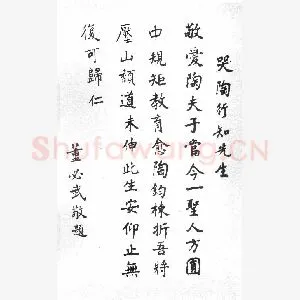 哭陶行知先生
敬爱陶夫子當今一聖人方圓
由規矩教育愈陶鈞棟折吾將
壓山頹道未伸此生安仰止無
復可歸仁
董必武敬題
Shufawang.CN